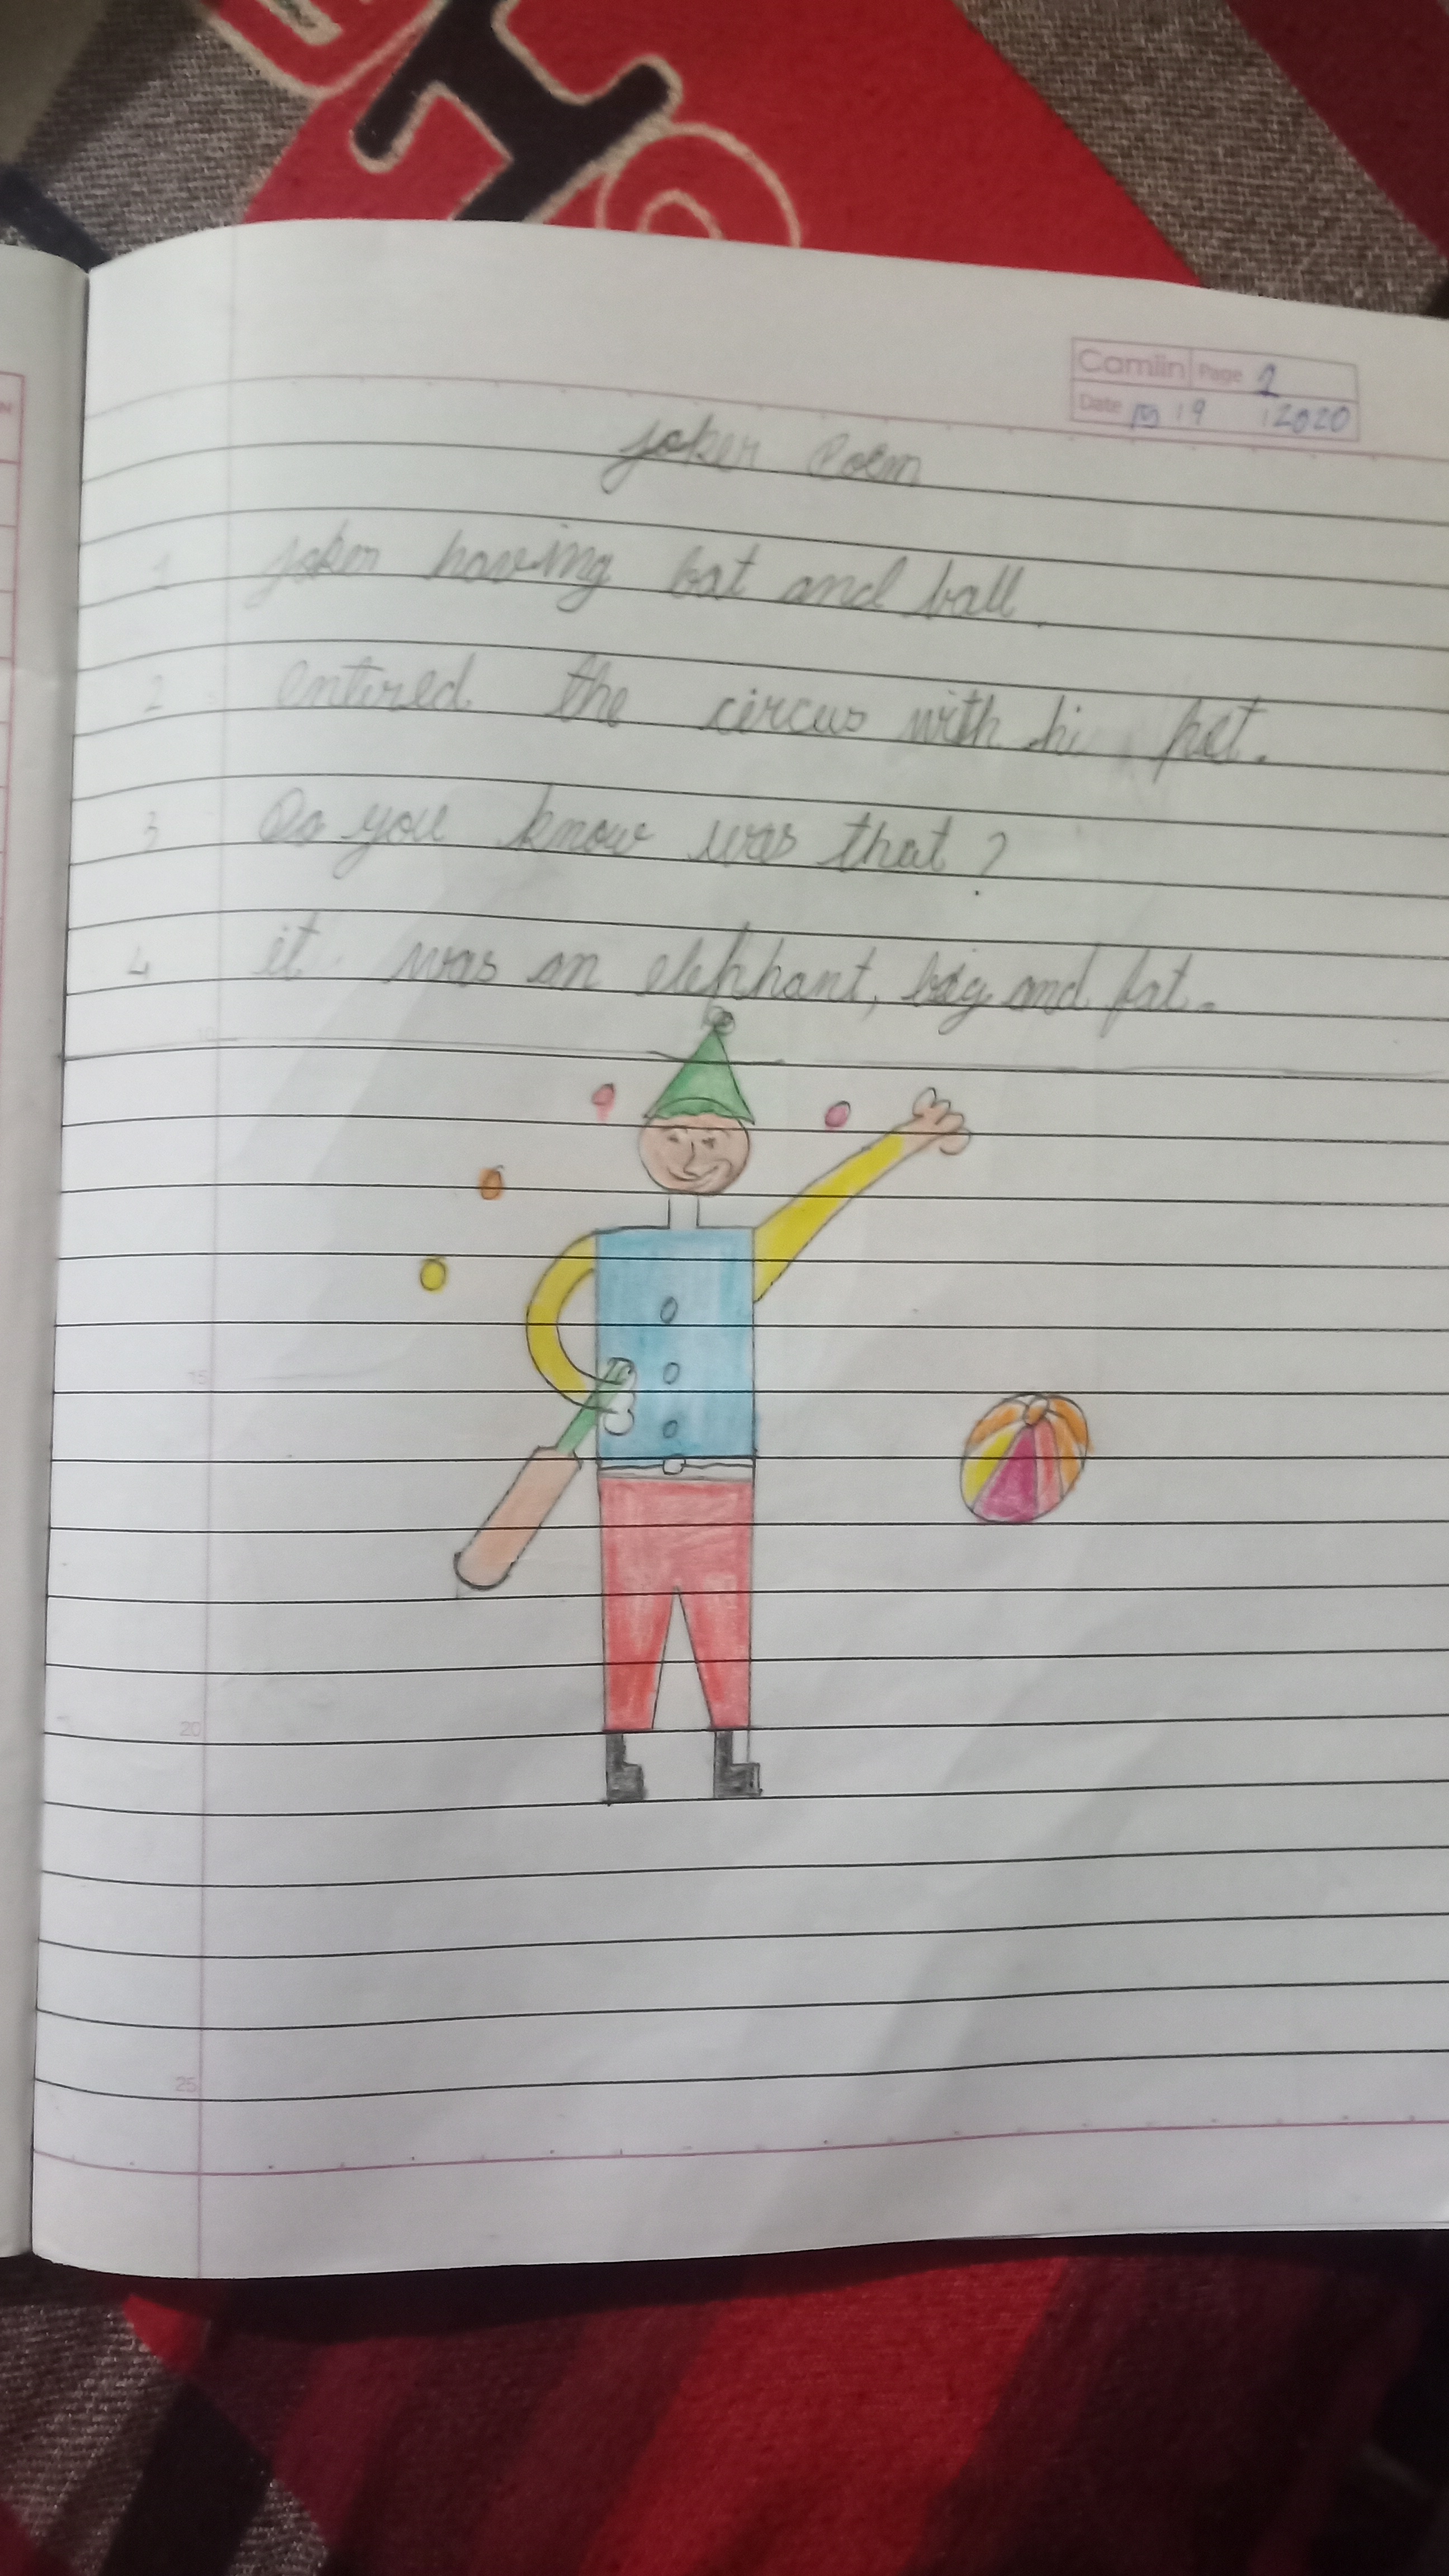 Camlin Page 2
Date 19 12020
joker Poem
1 joker having bat and ball
2 entired the circus with hi pet.
3 Do you know was that?
4 it was an elephant, big and fat.
15
20
25